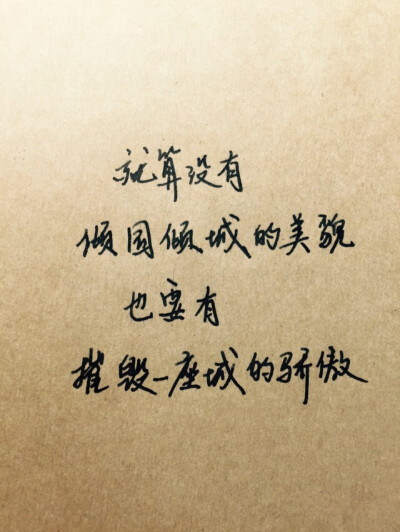 就算没有
倾国倾城的美貌
也要有
摧毁一座城的骄傲